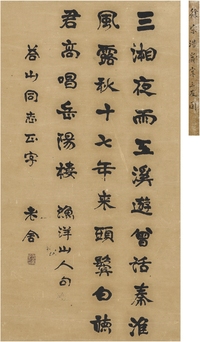 三湘夜雨五溪遊曾話秦淮
風露秋十七年來頭髩白聽
君高唱岳陽樓 漁洋山人句
谷山同志正字 老舍